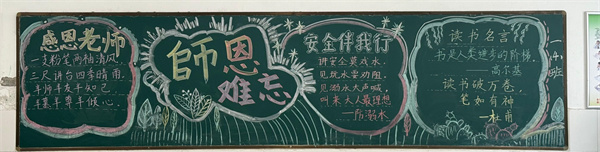 感恩老师
一支粉笔两袖清风
三尺讲台四季晴雨
半师半友半知己
半慕半尊半倾心
師恩
难忘
安全伴我行
讲安全莫戏水
见坑水要劝阻
遇溺水大声喊
叫来大人最理想
—防溺水
读书名言
书是人类进步的阶梯
——高尔基
读书破万卷
笔如有神
—杜甫